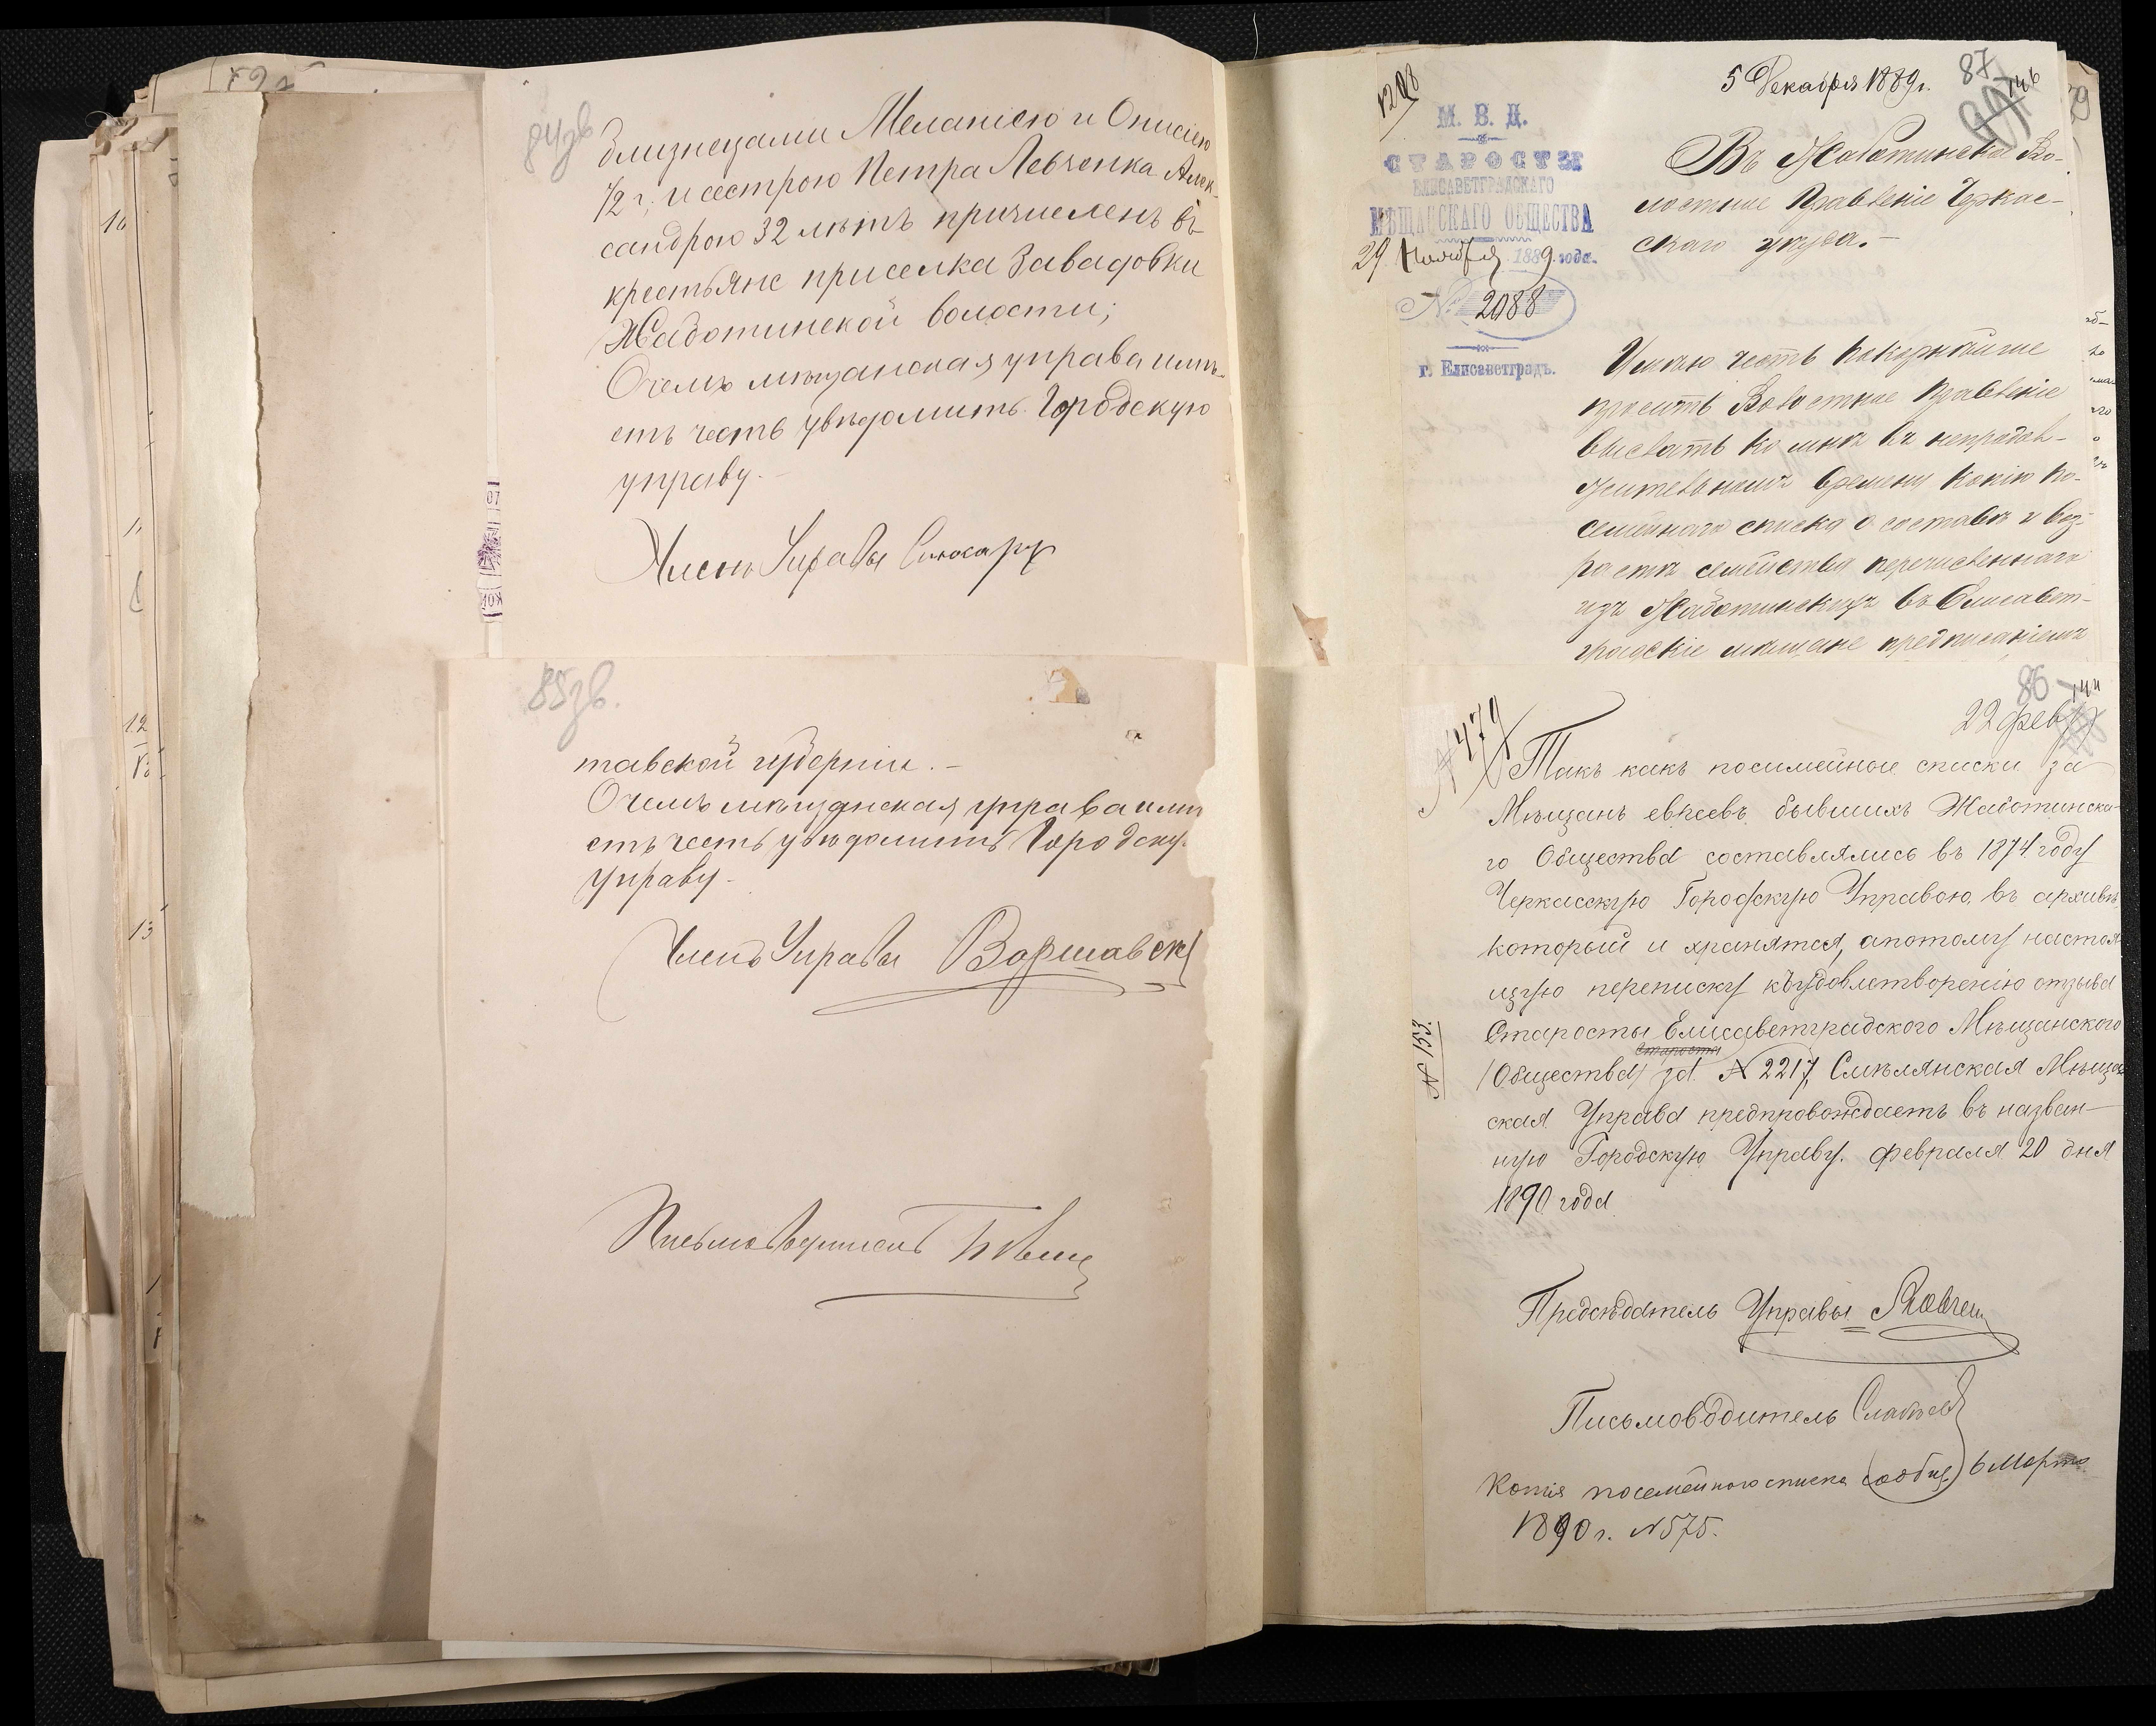 84зв
близнецами Меланіею и Онисіею
1/2 г, и сестрою Петра Левченка Алек-
сандрою 32 лѣтъ причисленъ въ
крестьяне приселка Завадовки
Жаботинской волости;
О чемъ мѣщанская управа имѣ-
етъ честь увѣдомить Городскую
управу.-
Членъ Управы
85зв.
тавской губерніи.-
О чемъ мѣщанская управа имѣ
етъ честь увѣдомить Городску
управу-
Членъ Управы Варшавск
Письмоводитель
1208
М. В. Д.
СТАРОСТЫ
ЕЛИСАВЕТГРАДСКАГО
МѢЩАНСКАГО ОБЩЕСТВА
29 Ноября 1889 года.
№ 2088
г. Елисаветградъ.
5 Декабря 1889г.
87
146
Въ Жаботинское Во-
лостное Правленіе Черкас-
скаго уѣзда.-
Имѣю честь покорнѣйше
просить Волостное Правленіе
выслать ко мнѣ въ непродол-
жительномъ времени копію по-
семейнаго списка о составѣ и воз-
растѣ семейства перечисленнаго
изъ Жаботинскихъ въ Елисавет-
градскіе мѣщане предписаніемъ
86
144
22 фев
№ 479
Такъ какъ посимейные списки за
Мѣщанъ евреевъ бывшихъ Жаботинска-
го Общества составлялись въ 1874 году
Черкасскую Городскую Управою въ архивѣ
который и хранятся, а потому настоя
щую переписку къ удовлетворенію отзыва
Старосты Елисаветградского Мѣщанского
Старосты
Общества за № 2217, Смѣлянская Мѣща
№ 153.
ская Управа предпровождаетъ въ назван-
ную Городскую Управу. февраля 20 дня
1890 года
Предсѣдатель Управы
Письмоводитель
Копія посемейного списка сообщ 6 Марта
1890 г. №575.